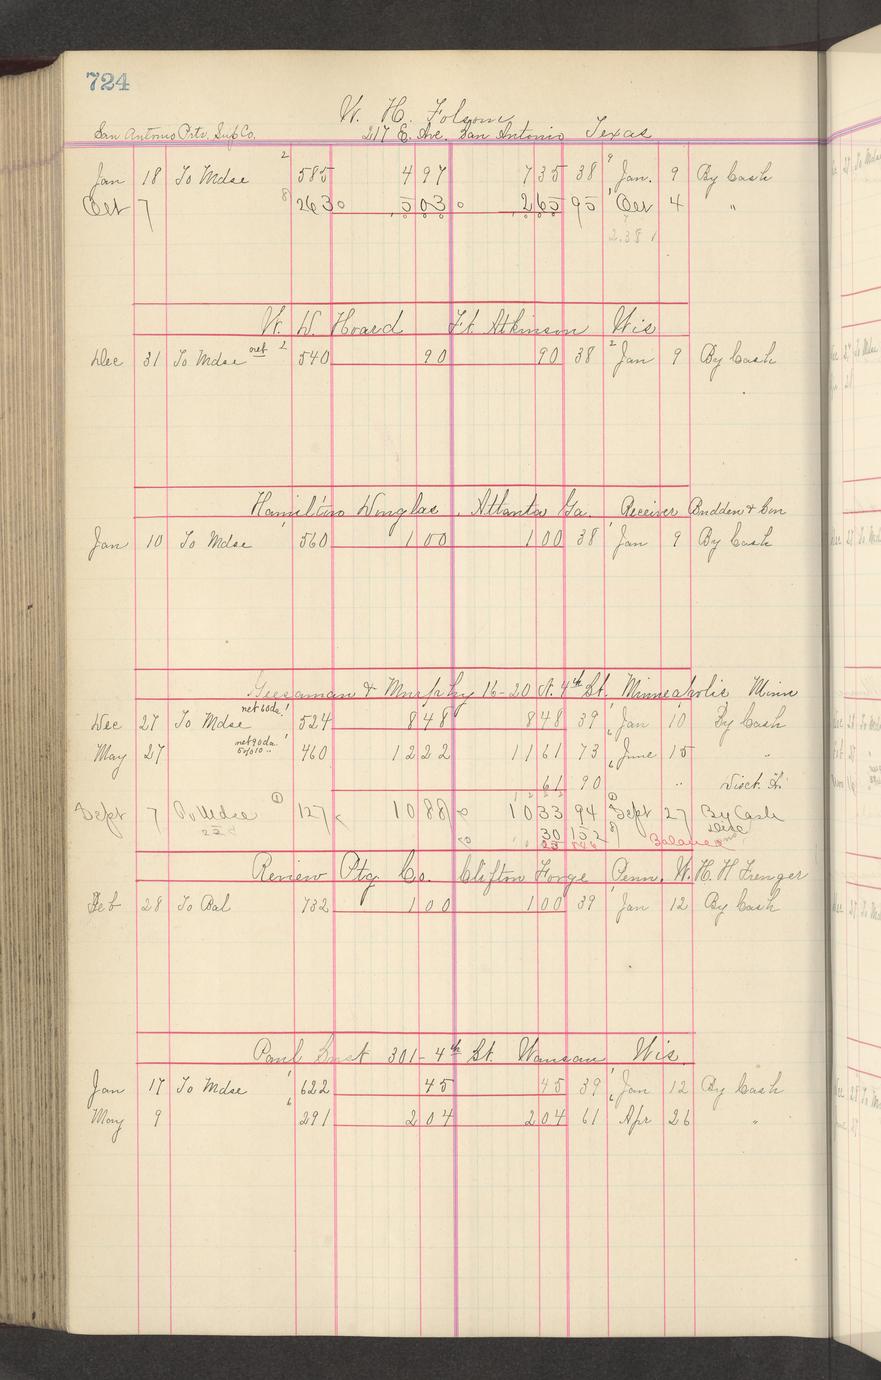 724
W. H. Folsom
San Antonio Prtr. Sup Co. 217 E. Ave. San Antonio Texas
Jan 18 To Mdse 2 585 4 97 7 35 38 9 Jan. 9 By Cash
Oct 7 8 263 5 03 2 65 95 1 Oct 4 "
2.38
W. D. Hoard Ft. Atkinson Wis
Dec 31 To Mdse net 2 540 90 90 38 2 Jan 9 By Cash
Hamilton Douglas, Atlanta Ga. Receiver
Jan 10 To Mdse ' 560 1 00 1 00 38 ' Jan 9 By Cash
Geesaman & Murphy 16-20 N. 4th St. Minneapolis Minn
Dec 27 To Mdse net 60 da. ' 524 8 48 8 48 39 ' Jan 10 By Cash
May 27 net 90 da. ' 460 12 22 11 61 73 June 15 "
61 90 " Disct.
Sept 7 To Mdse 1 127 10 88 10 33 94 Sept 27 By Cash
30 152
Balance
Review Ptg Co. Clifton Forge Penn. W. H. H Trenger
Feb 28 To Bal 732 1 00 1 00 39 ' Jan 12 By Cash
Paul 301-4th St. Wausau Wis.
Jan 17 To Mdse ' 622 45 45 39 ' Jan 12 By Cash
May 9 6 291 2 04 2 04 61 Apr 26 "